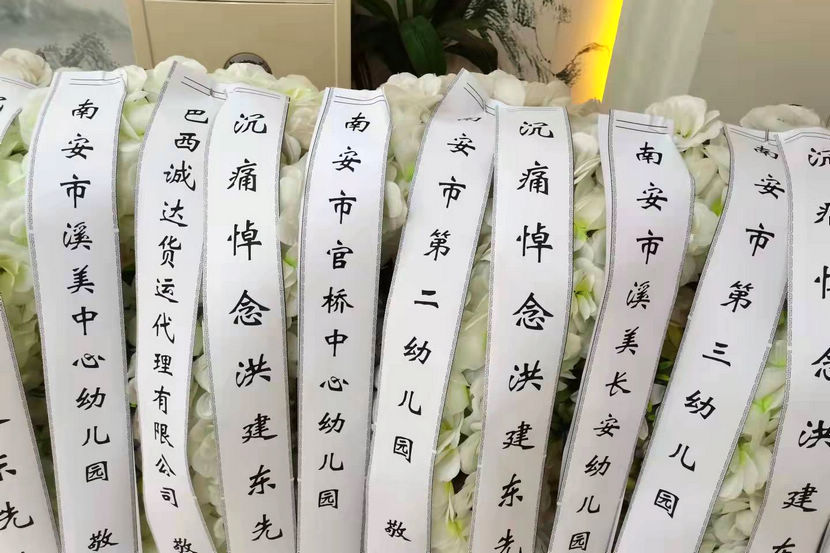 东先
南安市溪美中心幼儿园 敬
巴西诚达货运代理有限公司 敬
沉痛悼念洪建东先
南安市官桥中心幼儿园
南安市第二幼儿园 敬
沉痛悼念洪建东先
南安市溪美长安幼儿园
南安市第三幼儿园
沉痛悼念洪建东